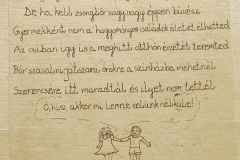 De ha kell zsonglőr vagy nagy éppen bűvész
Gyermekként nem a hagyományos családok életét élhetted
Az oviban így is a meghitt otthon érzetét teremted
Bár szavalni, játszani, örökre a színházba mehetnél
Szerencsére itt maradtál és ilyet nem tettél
Ó, hisz akkor mi lenne velünk nélküled!